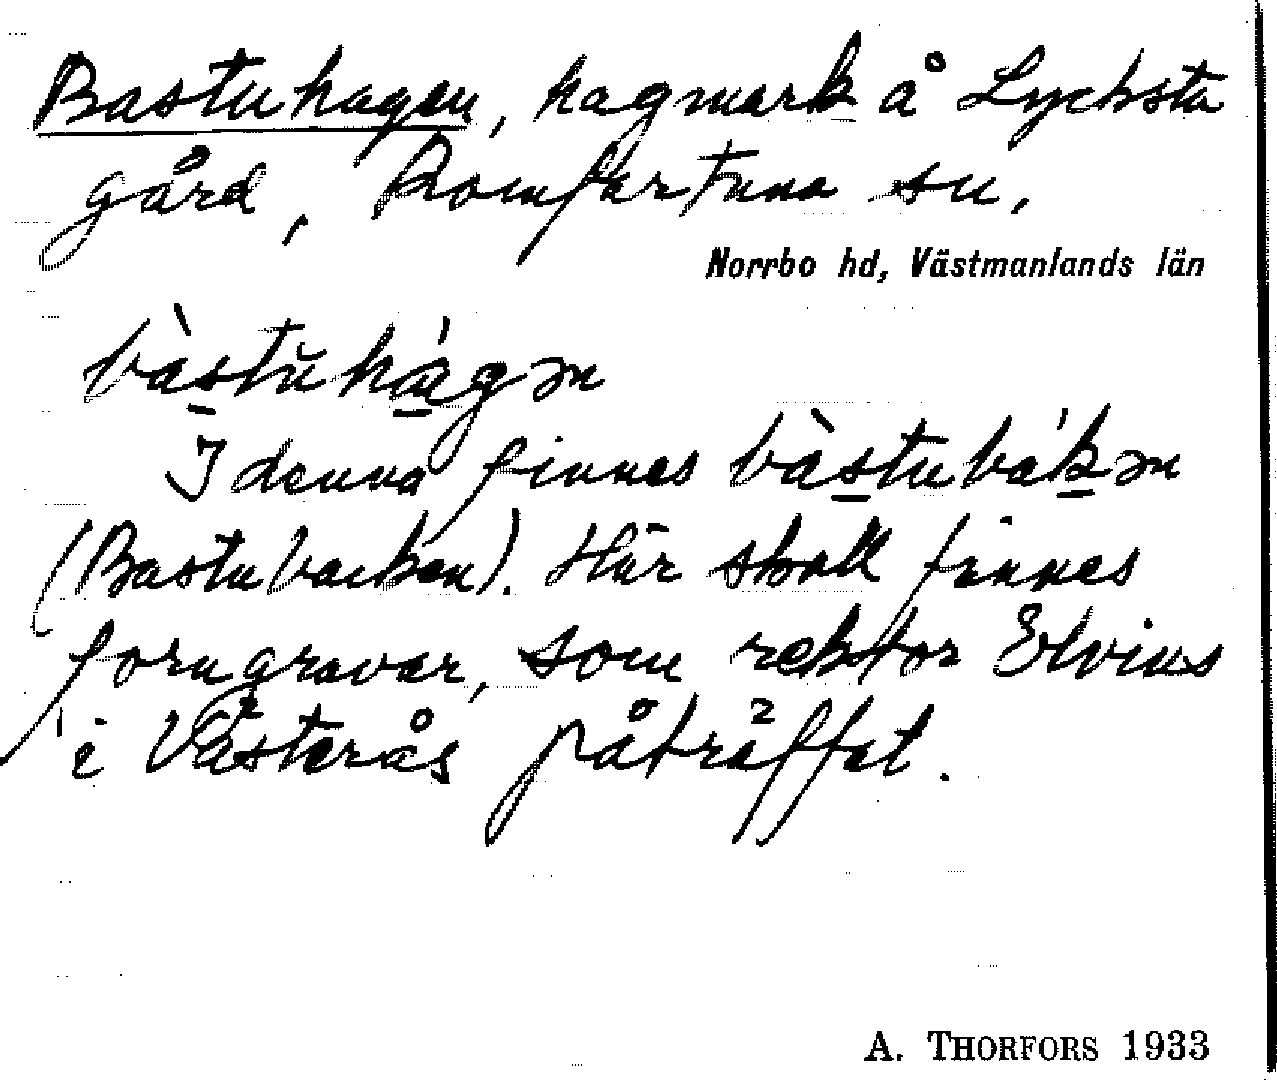 Bastuhagen, hagmark å Lycksta
gård, Romfartuna sn.
Norrbo hd, Västmanlands län
bàstŭhágən
I denna finnes bàstubákən
(Bastubacken). Här skall finnes
forngravar, som rektor Elvius
i Västerås påträffat.
A. THORFORS 1933